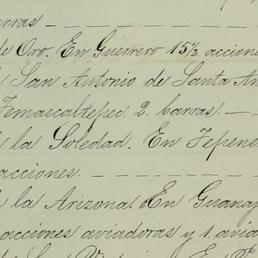 barras —
de Oro. En Guerrero 15½ accion
San Antonio de Santa An
Temascaltepec 2. barras. —
la Soledad. En Tepene
acciones. —
la Arizona. En Guanaj
acciones aviadoras y 1 avia